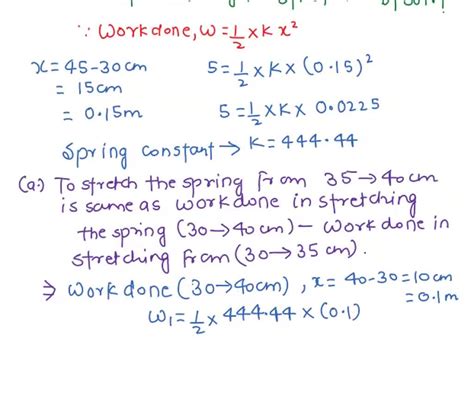 ∵ Work done, W = 1/2 × K x²
x = 45-30cm
= 15cm
= 0.15m
5 = 1/2 × K × (0.15)²
5 = 1/2 × K × 0.0225
Spring constant → K = 444.44
(a.) To stretch the spring from 35→40cm
is same as work done in stretching
the spring (30→40cm) - Work done in
stretching from (30→35 cm).
⇒ Work done (30→40cm), x = 40-30=10cm
= 0.1m
W₁ = 1/2 × 444.44 × (0.1)